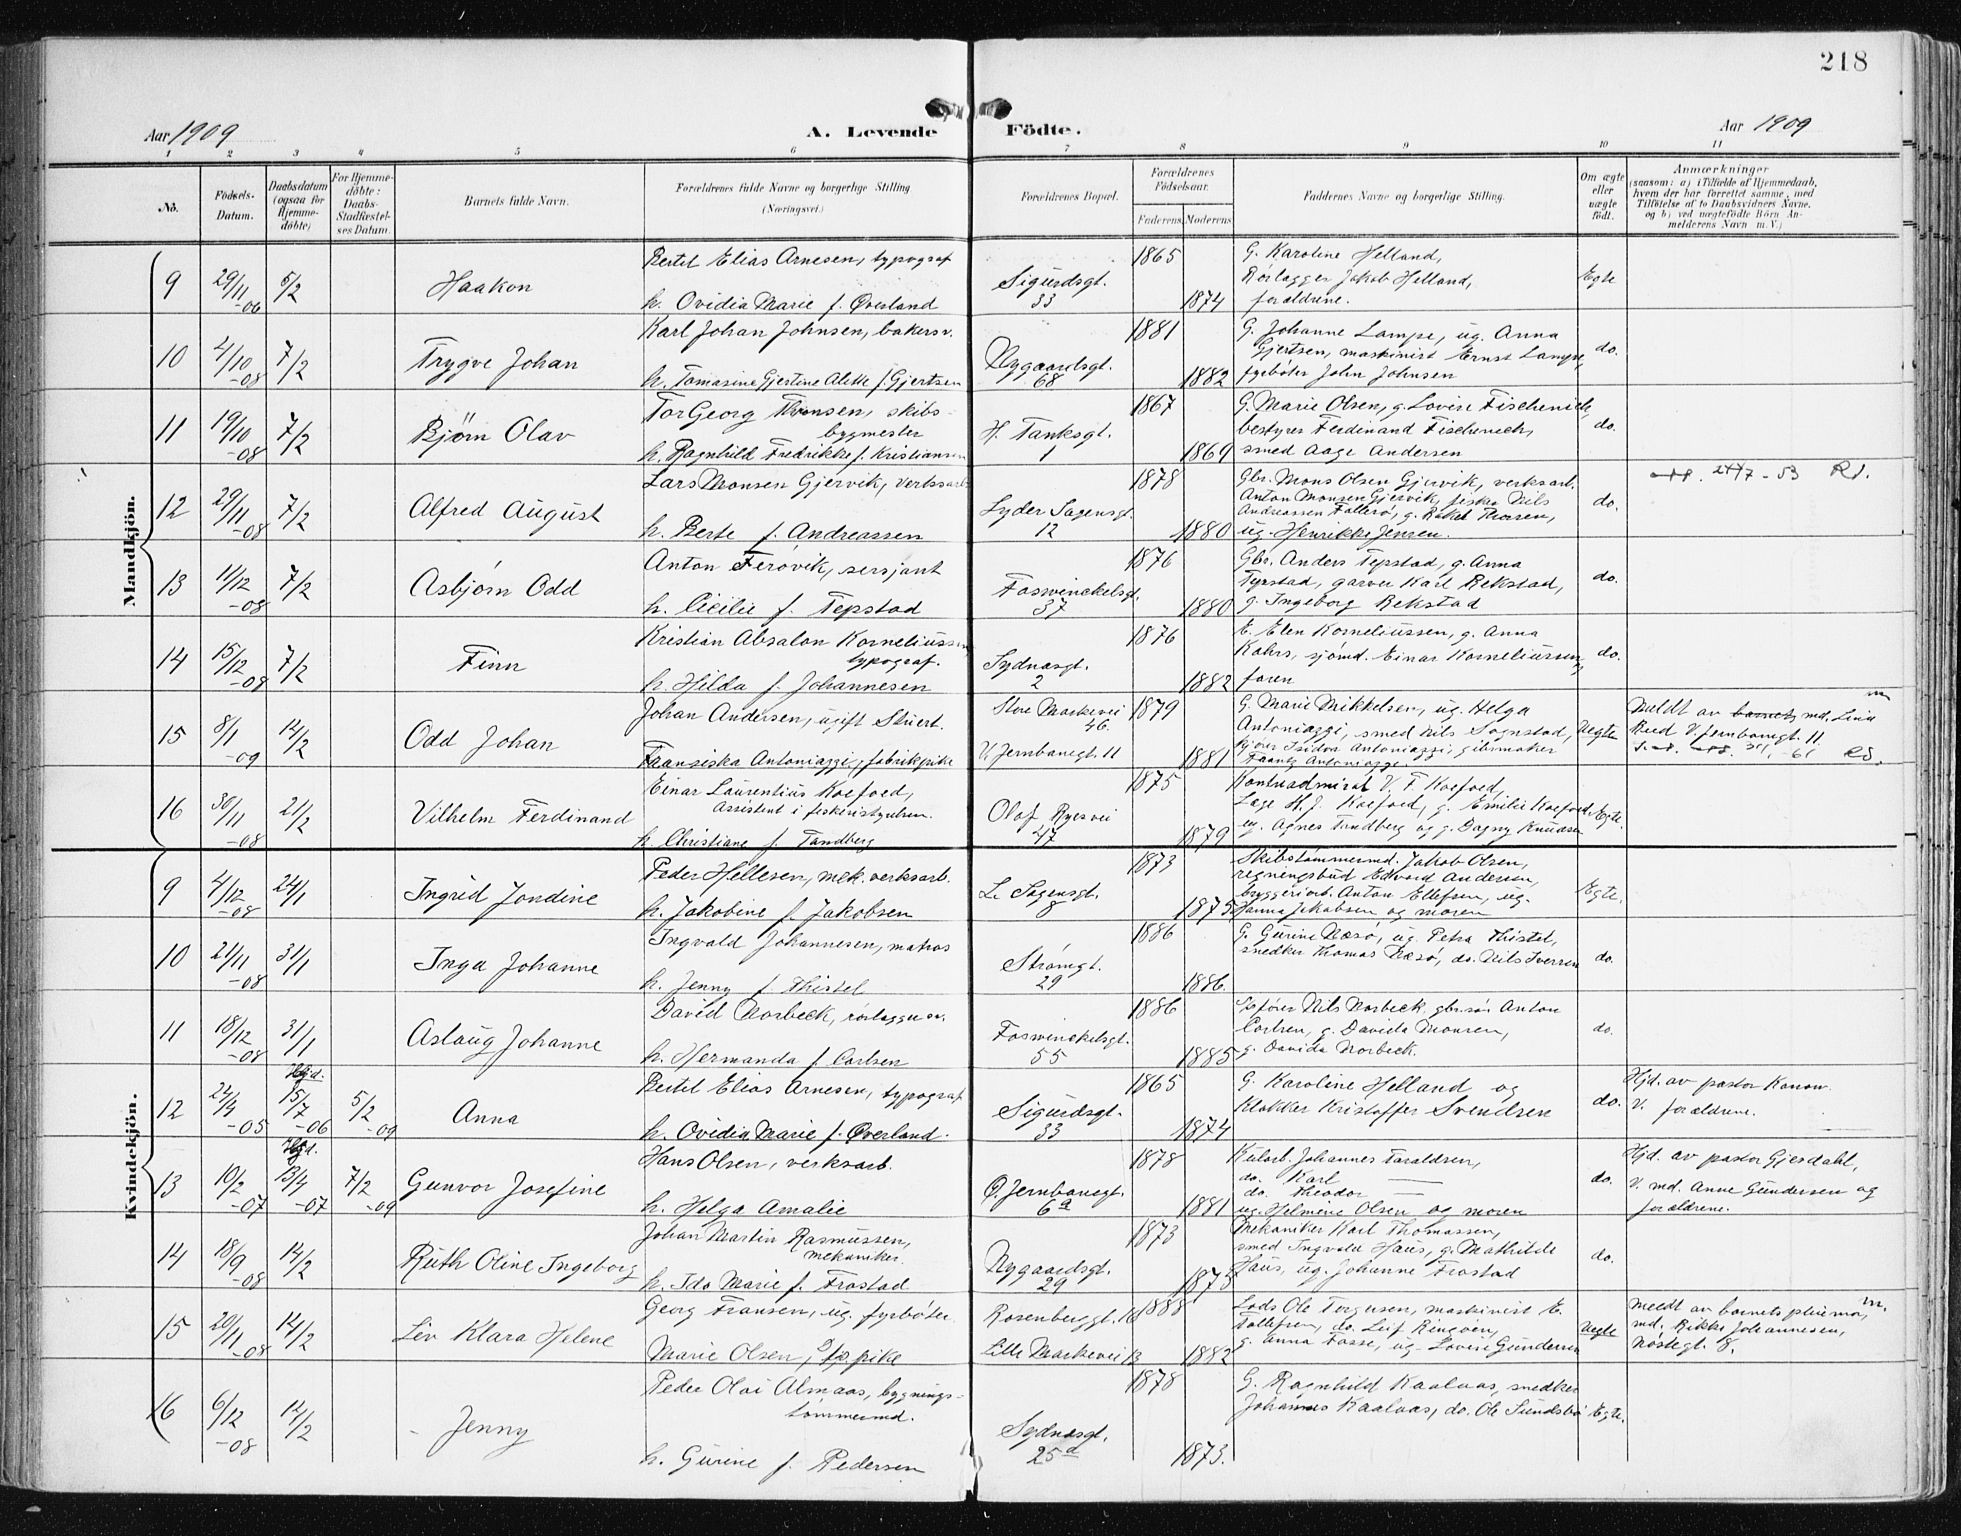 218
Aar 1909
A. Levende Födte.
Aar 1909
1 2 3 4 5 6 7 8 9 10 11
No.
Födsels-Datum.
Daabsdatum (ogsaa for Hjemme-döbte)
For Hjemme-döbte: Daabs-Stadfæstel-ses Datum.
Barnets fulde Navn.
Forældrenes fulde Navne og borgerlige Stilling (Næringsvei.)
Forældrenes Bopæl.
Forældrenes Födselsaar.
Faderens Moderens
Faddernes Navne og borgerlige Stilling.
Om ægte eller uægte födt.
Anmærkninger
(saasom: a) i Tilfælde af Hjemmedaab, hvem der har forrettet samme, med Tilföielse af to Daabsvidners Navne, og b) ved uægtefödte Börn Anmelderens Navn m. V.)
Mandkjön.
9 29/11 -06 5/2 Haakon
Bertel Elias Arnesen, typograf
h. Ovidia Marie f. Øverland
Sigurdsgt. 33
1865 1874
G. Karoline Helland,
Rörlægger Jakob Helland,
forældrene.
Egte
10 4/10 -08 7/2 Trygve Johan
Karl Johan Johnsen, bakersv.
h. Tomasine Gjertine Alette f. Gjertsen
Nygaardsgt. 68
1881 1882
G. Johanne Lampe, ug. Anna
Gjertsen, maskinist Ernst Lampe,
fyrbøter John Johnsen
do.
11 19/10 -08 7/2 Bjørn Olav
Tor Georg Thonsen, skibs-
bygmester
h. Ragnhild Fredrikke f. Kristiansen
H. Tanksgt. 1
1867 1869
G. Marie Olsen, g. Lovise Fischenich,
bestyrer Ferdinand Fischenich,
smed Aage Andersen
do.
12 29/11 -08 7/2 Alfred August
Lars Monsen Gjervik, verksarb.
h. Berte f. Andreassen
Lyder Sagensgt. 12
1878 1880
Gbr. Mons Olsen Gjervik, verksarb.
Anton Monsen Gjervik, fisker Nils
Andreassen Follesø, g. Rakel Thorsen,
ug. Henrikke Jensen.
do.
-53
13 11/12 -08 7/2 Asbjørn Odd
Anton Ferøvik, sersjant
h. Cicilie f. Tepstad
Fosswinckelsgt. 37
1876 1880
Gbr. Anders Tepstad, g. Anna
Tepstad, garver Karl Rekstad,
g. Ingeborg Rekstad
do.
14 15/12 -08 7/2 Finn
Kristian Absalon Korneliussen,
typograf.
h. Hilda f. Johannesen
Sydnæsgt. 2
1876 1882
E. Elen Korneliussen, g. Anna
Kahrs, sjømd. Einar Korneliussen,
faren
do.
15 8/1 -09 12/2 Odd Johan
Johan Andersen, ugift Stuert.
Fransiska Antoniazzi, fabrikpike
Store Markevei 46.
V. Jernbanegt. 11
1879 1881
G. Marie Mikkelsen, ug. Helga
Antoniazzi, smed Nils Sognstad,
Isidor Antoniazzi, gibsmaker
Frantz Antoniazzi.
Uegte
Meldt av barnets md. Lina
Rud V. Jernbanegt. 11.
-61
16 30/11 -08 21/2 Vilhelm Ferdinand
Einar Laurentius Koefoed,
Assistent i fiskeristyrelsen.
h. Christiane f. Tandberg
Olaf Ryesvei 47
1875 1879
Kontreadmiral V. F. Koefoed,
Læge H. J. Koefoed, g. Emilie Koefoed,
ug. Agnes Tandberg og g. Dagny Knudsen
Egte.
Kvindekjön.
9 4/12 -08 24/1 Ingrid Jondine
Peder Hellesen, mek. verksarb.
h. Jakobine f. Jakobsen
L. Sagensgt. 8
1873 1875
Skibstømmermd. Jakob Olsen,
regningsbud Edvard Andersen,
bryggeriarb. Anton Ellefsen, ug.
Hanna Jakobsen og moren
Egte.
10 21/11 -08 31/1 Inga Johanne
Ingvald Johannesen, matros
h. Jenny f. Thistel
Strømgt. 29
1886 1886.
G. Gurine Næsø, ug. Petra Thistel,
snedker Thomas Næsø, do. Nils Iversen
do.
11 18/12 -08 31/1 Aslaug Johanne
David Norbeck, rørlægger sv.
h. Hermanda f. Carlsen
Fosswinckelsgt. 55
1886 1885
Nils Norbeck, gbr.søn Anton
Carlsen, g. Davida Monsen,
g. Davida Norbeck.
do.
12 24/4 -05 Hjd. 15/7 -06 5/2 -09 Anna
Bertel Elias Arnesen, typograf
h. Ovidia Marie f. Øverland.
Sigurdsgt. 33
1865 1874
G. Karoline Helland og
Klokker Kristoffer Svendsen
do.
Hjd. av pastor Konow.
V. forældrene.
13 10/2 -07 Hjd. 13/4 -07 7/2 -09 Gunvor Josefine
Hans Olsen, verksarb.
h. Helga Amalie
Ø. Jernbanegt. 6a
1878 1881
Kularb. Johannes Taraldsen,
do. Karl —
do. Theodor —
ug. Helmine Olsen og moren
do.
Hjd. av pastor Gjesdahl,
V. md. Anne Gundersen og
forældrene.
14 18/9 -08 14/2 Ruth Oline Ingeborg
Johan Martin Rasmussen,
mekaniker.
h. Ida Marie f. Frostad
Nygaardsgt. 29
1873 1875
Mekaniker Karl Thomassen,
smed Ingvald Haus, g. Mathilde
Haus, ug. Johanne Frostad
do.
15 20/11 -08 14/2 Liv Klara Helene
Georg Fransen, ug. fyrbøter
Marie Olsen, pike
Rosenberggt. 16
Lille Markevei 13
1888 1882
Lods Ole Torgersen, maskinist E.
Tollefsen, do. Leif Ringøen,
g. Anna Fosse, ug. Lovise Gundersen
Uegte
Meldt av barnets pleiemor,
md. Rikke Johannesen,
Nøstegt. 8.
16 6/12 -08 14/2 Jenny
Peder Olai Almaas, bygnings-
tømmermd.
h. Gurine f. Pedersen
Sydnæsgt. 25d
1878 1873.
G. Ragnhild Kaalaas, snedker
Johannes Kaalaas, do. Ole Sundsbø
Egte.